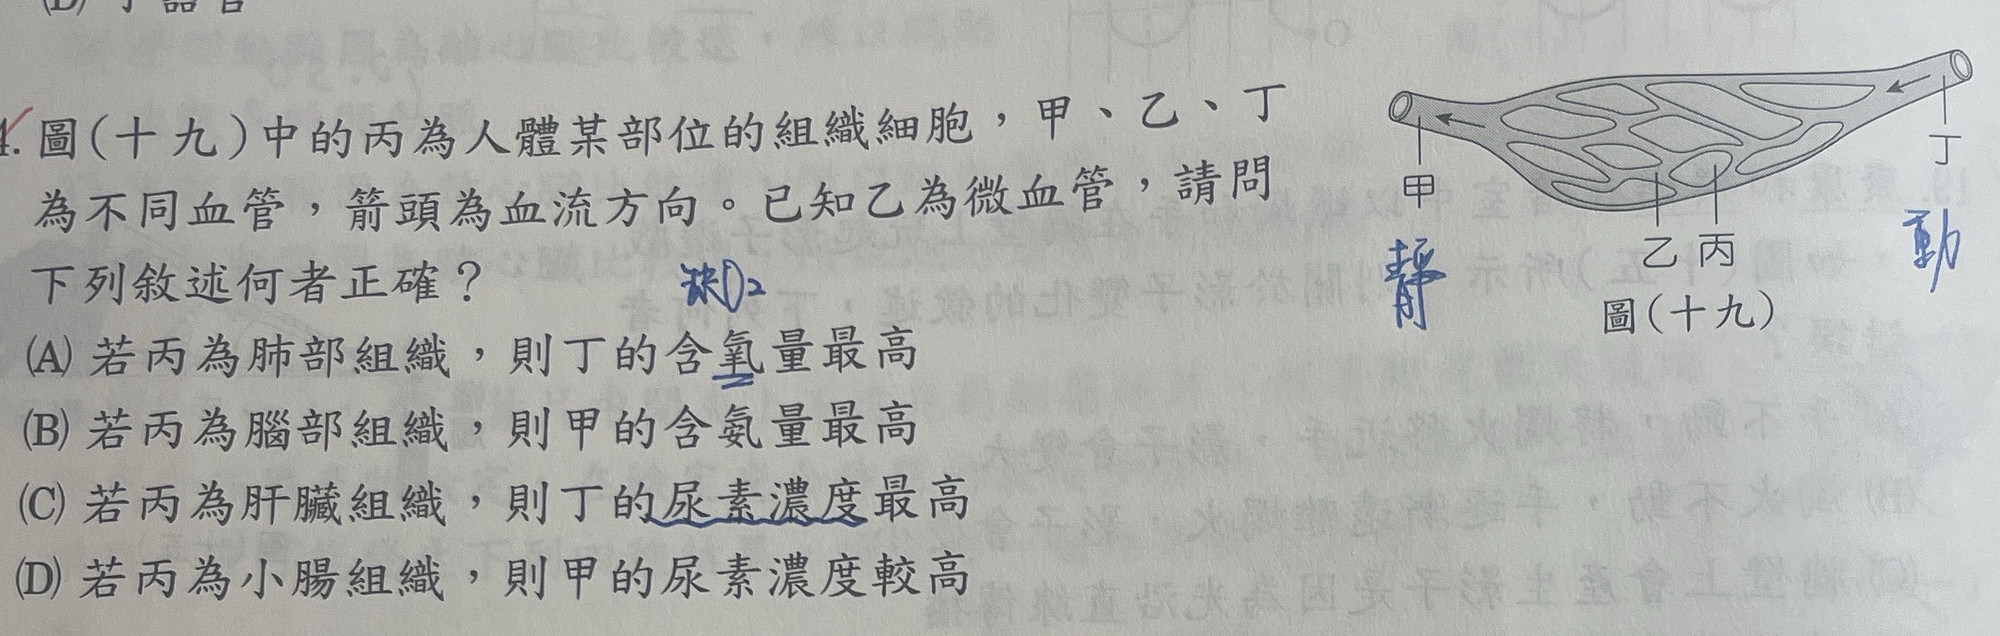 4. 圖(十九)中的丙為人體某部位的組織細胞，甲、乙、丁
為不同血管，箭頭為血流方向。已知乙為微血管，請問
下列敘述何者正確？
缺O2
(A) 若丙為肺部組織，則丁的含氧量最高
(B) 若丙為腦部組織，則甲的含氨量最高
(C) 若丙為肝臟組織，則丁的尿素濃度最高
(D) 若丙為小腸組織，則甲的尿素濃度較高
丁
甲
乙 丙
靜
動
圖(十九)